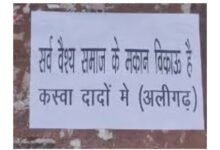 सर्व वैश्य समाज के मकान विकाऊ है
कस्वा दादों मे (अलीगढ़)